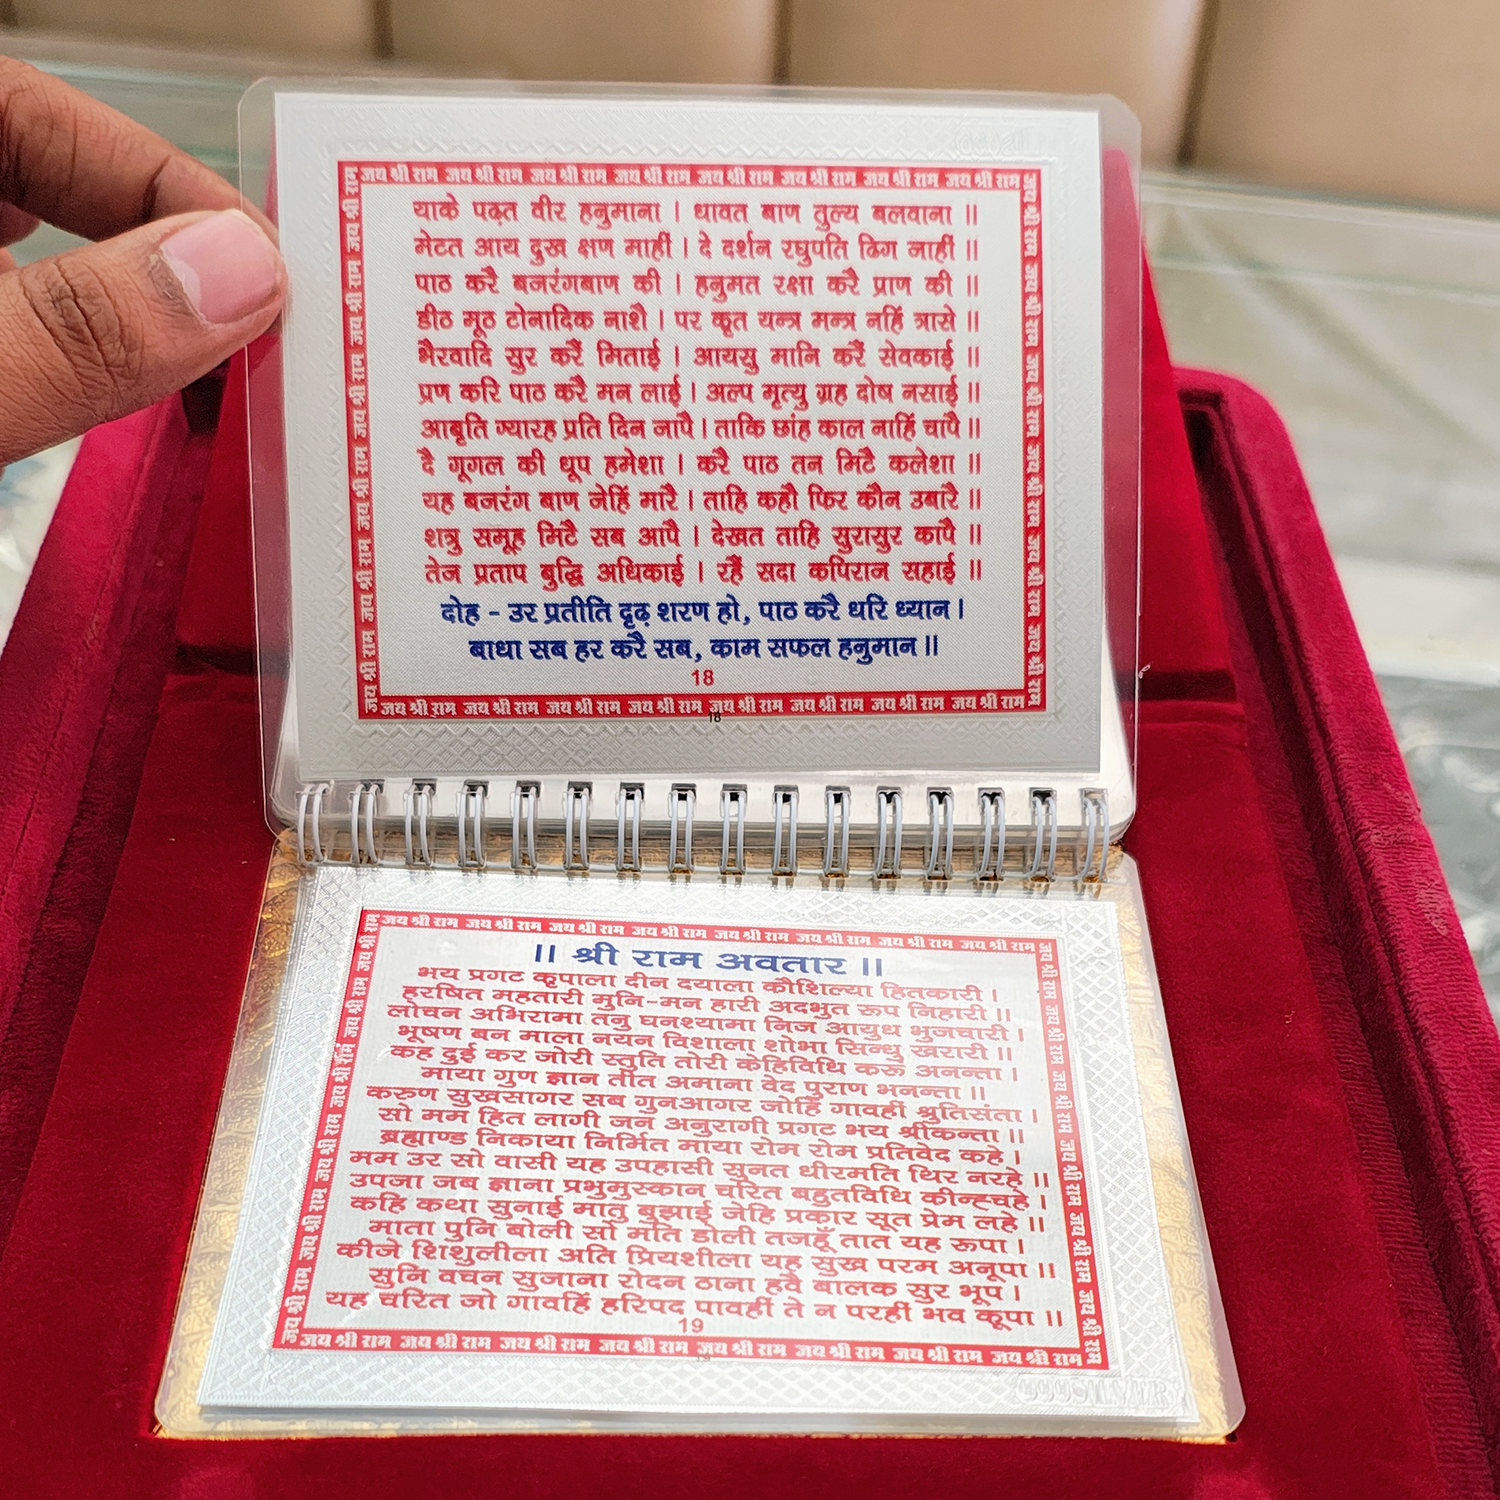 जय श्री राम जय श्री राम जय श्री राम जय श्री राम जय श्री राम जय श्री राम जय श्री राम जय श्री राम
याके पढ़त वीर हनुमाना । धावत बाण तुल्य बलवाना ॥
मेटत आय दुख क्षण माहीं । दे दर्शन रघुपति ढिग नाहीं ॥
पाठ करै बजरंगबाण की । हनुमत रक्षा करै प्राण की ॥
डीठ मूठ टोनादिक नाशै । पर कृत यन्त्र मन्त्र नहिं त्रासे ॥
भैरवादि सुर करैं मिताई । आयसु मानि करैं सेवकाई ॥
प्रण करि पाठ करै मन लाई । अल्प मृत्यु ग्रह दोष नसाई ॥
आबृति ग्यारह प्रति दिन जापै । ताकि छांह काल नाहिं चांपै ॥
दै गूगल की धूप हमेशा । करै पाठ तन मिटै कलेशा ॥
यह बजरंग बाण जेहिं मारै । ताहि कहौ फिर कौन उबारै ॥
शत्रु समूह मिटै सब आपै । देखत ताहि सुरासुर कापै ॥
तेज प्रताप बुद्धि अधिकाई । रहैं सदा कपिराज सहाई ॥
दोह - उर प्रतीति दृढ़ शरण हो, पाठ करै धरि ध्यान ।
बाधा सब हर करै सब, काम सफल हनुमान ॥
18
जय श्री राम जय श्री राम जय श्री राम जय श्री राम जय श्री राम जय श्री राम जय श्री राम जय श्री राम
18
जय श्री राम जय श्री राम जय श्री राम जय श्री राम जय श्री राम जय श्री राम जय श्री राम जय श्री राम
॥ श्री राम अवतार ॥
भय प्रगट कृपाला दीन दयाला कौशिल्या हितकारी ।
हरषित महतारी मुनि-मन हारी अदभुत रूप निहारी ॥
लोचन अभिरामा तनु घनश्यामा निज आयुध भुजचारी ।
भूषण बन माला नयन विशाला शोभा सिन्धु खरारी ॥
कह दुई कर जोरी स्तुति तोरी केहिविधि करूं अनन्ता ।
माया गुण ज्ञान तीत अमाना वेद पुराण भनन्ता ॥
करुण सुखसागर सब गुनआगर जोहिं गावहीं श्रुतिसंता ।
सो मम हित लागी जन अनुरागी प्रगट भय श्रीकन्ता ॥
ब्रह्माण्ड निकाया निर्मित माया रोम रोम प्रतिवेद कहे ।
मम उर सो वासी यह उपहासी सुनत धीरमति थिर नरहे ॥
उपजा जब ज्ञाना प्रभुमुस्कान चरित बहुतविधि कीन्हचहे ।
कहि कथा सुनाई मातु बुझाई जेहि प्रकार सूत प्रेम लहे ॥
माता पुनि बोली सो मति डोली तजहूँ तात यह रूपा ।
कीजे शिशुलीला अति प्रियशीला यह सुख परम अनूपा ॥
सुनि वचन सुजाना रोदन ठाना हवै बालक सुर भूप ।
यह चरित जो गावहिं हरिपद पावहीं ते न परहीं भव कूपा ॥
19
जय श्री राम जय श्री राम जय श्री राम जय श्री राम जय श्री राम जय श्री राम जय श्री राम जय श्री राम